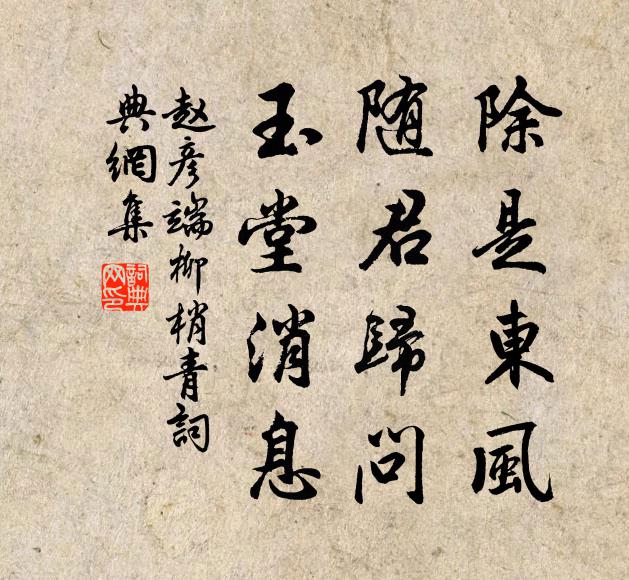 除是東風
随君歸問
玉堂消息
赵彦端柳梢青詞
典網集
詞典網印